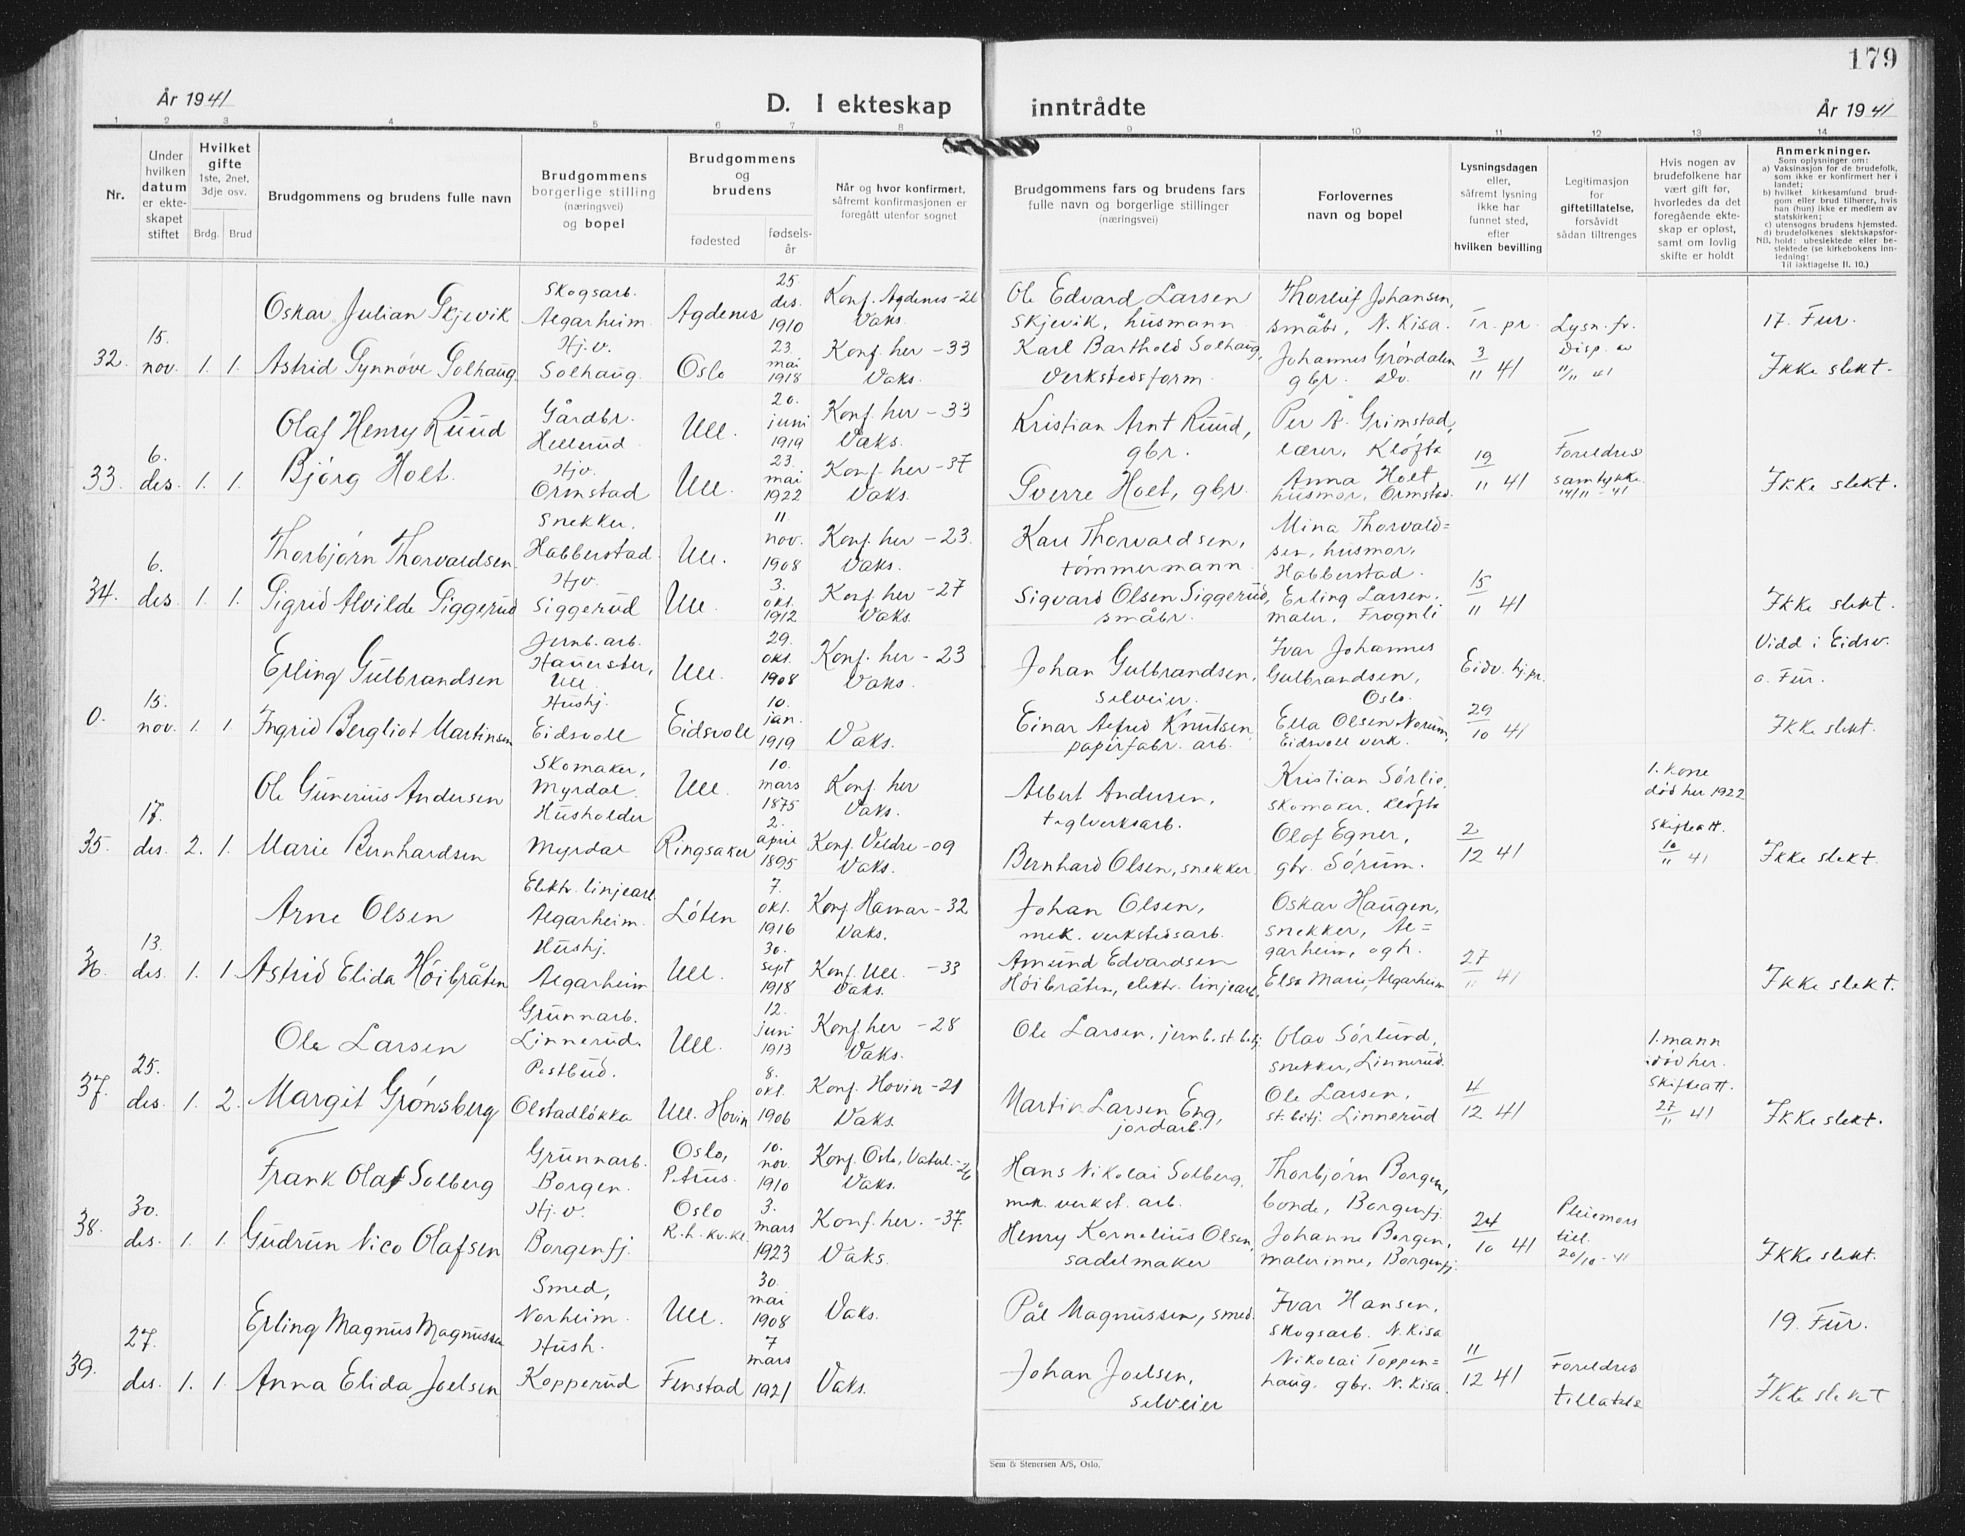 179
År 1941
D. I ekteskap inntrådte
År 1941
1 2 3 4 5 6 7 8 9 10 11 12 13 14
Nr.
Under hvilken datum er ekteskapet stiftet
Hvilket gifte 1ste, 2net, 3dje osv.
Brdg. Brud
Brudgommens og brudens fulle navn
Brudgommens borgerlige stilling (næringsvei) og bopel
Brudgommens og brudens
fødested
fødselsår
Når og hvor konfirmert, såfremt konfirmasjonen er foregått utenfor sognet
Brudgommens fars og brudens fars fulle navn og borgerlige stillinger (næringsvei)
Forlovernes navn og bopel
Lysningsdagen eller, såfremt lysning ikke har funnet sted, efter hvilken bevilling
Legitimasjon for giftetillatelse, forsåvidt sådan tiltrenges
Hvis nogen av brudefolkene har vært gift før, hvorledes da det foregående ekteskap er opløst, samt om lovlig skifte er holdt
Anmerkninger.
Som oplysninger om:
a) Vaksinasjon for de brudefolk, som ikke er konfirmert her i landet;
b) hvilket kirkesamfund brudgom eller brud tilhører, hvis han (hun) ikke er medlem av statskirken;
c) utensogns brudens hjemsted.
d) brudefolkenes slektskapsforhold: ubeslektede eller beslektede (se kirkebokens innledning:
NB.
Til iaktagelse II. 10.)
32. 15. nov. 1. 1.
Oskar Julian Skjevik Skogsarb. Algarheim. Agdenes 25. des. 1910 Konf. Agdenes Vaks. Ole Edvard Larsen Skjevik, husmann Thorleif Johansen, småbr. N. Kisa. Tr. pr. Lysn. fr. 17. Fur.
Astrid Synnøve Solhaug Hj.v. Solhaug. Oslo 23. mai 1918 Konf. her - 33 Vaks. Karl Barthold Solhaug, Verkstedsform. Johannes Grøndalen gbr. Do. 3/11 41 Disp. av 11/11 41 Ikke slekt.
33. 6. des. 1. 1.
Olaf Henry Ruud Gårdbr. Hellerud Ull. 20. juni 1919 Konf. her - 33 Vaks. Kristian Arnt Ruud, gbr. Per A. Grimstad, lærer, Kløfta
Bjørg Holt. Hjv. Ormstad Ull. 23. mai 1922 Konf. her - 37 Vaks. Sverre Holt, gbr. Anna Holt husmor, Ormstad. 19/11 41 Foreldres samtykke 14/11 - 41 Ikke slekt.
34. 6. des. 1. 1.
Thorbjørn Thorvaldsen Snekker. Habberstad. Ull. 11 nov. 1908 Konf. her - 23. Vaks. Karl Thorvaldsen, tømmermann. Mina Thorvald= sen, husmor, Habberstad.
Sigrid Alvilde Siggerud Hjv. Siggerud Ull. 3. okt. 1912 Konf. her - 27 Vaks. Sigvard Olsen Siggerud, småbr. Erling Larsen. maler, Frognli 15/11 41 Ikke slekt.
0. 15. nov. 1. 1
Erling Gulbrandsen Jernb. arb. Hauerster, Ull. Ull. 29. okt. 1908 Konf. her - 23 Vaks. Johan Gulbrandsen, selveier. Ivar Johannes Gulbrandsen, Oslo. Vidd i Eidsv. a. Fur.
Ingrid Bergliot Martinsen Hushj. Eidsvoll Eidsvoll 10. jan. 1919 Vaks. Einar Alfred Knutsen, papirfabr. arb. Ella Olsen Norum, Eidsvoll verk. 29/10 41 Ikke slekt.
35. 17. des. 2. 1.
Ole Gunerius Andersen Skomaker, Myrdal. Ull. 10. mars 1875 Konf. her Vaks. Albert Andersen, teglverksarb. Kristian Sørlie, skomaker, Kløfta 1. kone død her 1922
Marie Bernhardsen Husholder Myrdal Ringsaker 2. april 1895 Konf. Veldre - 09 Vaks. Bernhard Olsen, snekker Olaf Egner, gbr. Sørum. 2/12 41 Skifteatt. 10/11 41 Ikke slekt.
36. 13. des. 1. 1
Arne Olsen Elektr. linjearb. Algarheim. Løten 7. okt. 1916 Konf. Hamar - 32 Vaks. Johan Olsen, mek. verkstedsarb. Oskar Haugen, snekker, Al= garheim, ogh.
Astrid Elida Høibråten Hushj. Algarheim Ull. 30. sept 1918 Konf. Ull. - 33 Vaks. Amund Edvardsen Høibråten, elektr. linjearb. Elsa Marie, Algarheim 27/11 41 Ikke slekt.
37. 25. des. 1. 2.
Ole Larsen Grunnarb. Linnerud. Ull. 12. juni 1913 Konf. her - 28 Vaks. Ole Larsen, jernb. st. betj. Olav Sørlund, snekker, Linnerud. 1. mann død her.
Margit Grønsberg Postbud. Olstadløkka Ull. Hovin 8. okt. 1906 Konf. Hovin - 21 Vaks. Martin Larsen Eng, jordarb. Ole Larsen, st. betj. Linnerud 4/12 41 Skifteatt. 27/11 41 Ikke slekt.
38. 30. des. 1. 1.
Frank Olaf Solberg Grunnarb. Borgen. Oslo, Petrus. 10. nov. 1910 Konf. Oslo, - 26 Vaks. Hans Nikolai Solberg, mek. verkst. arb. Thorbjørn Borgen, bonde, Borgenfj.
Gudrun Nico Olafsen Hj.v. Borgenfj. Oslo R.h. kv.kl. 3. mars 1923 Konf. her. - 37. Vaks. Henry Kornelius Olsen, sadelmaker Johanne Borgen, malerinne, Borgenfj. 24/10 41 Pleiemors till. 20/10 - 41 Ikke slekt.
39. 27. des. 1. 1.
Erling Magnus Magnussen Smed, Norheim. Ull. 30. mai 1908 Vaks. Pål Magnussen, smed. Ivar Hansen, skogsarb. N. Kisa 19. Fur.
Anna Elida Joelsen Hush. Kopperud Fenstad 7 mars 1921 Vaks. Johan Joelsen, selveier Nikolai Toppen= haug. gbr. N. Kisa. 11/12 41 Foreldres tillatelse Ikke slekt
Sem & Stenersen A/S, Oslo.